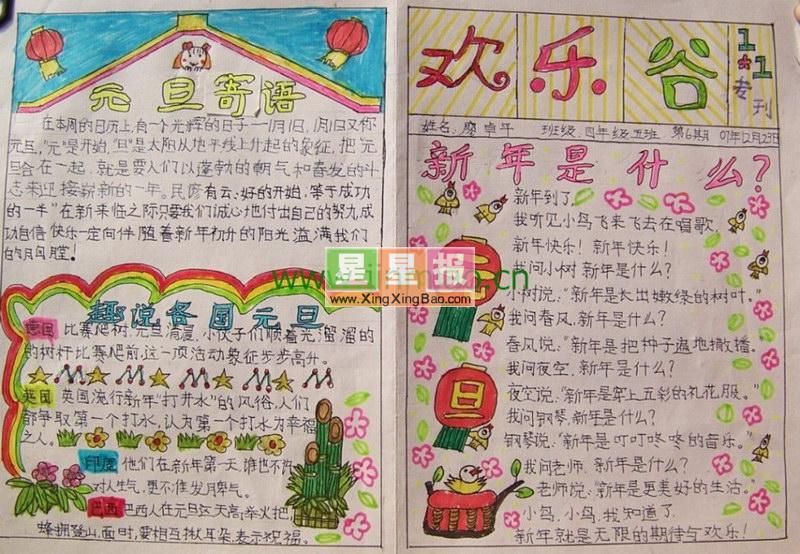 元旦寄语
在本周的日历上,有一个光辉的日子一1月1日,1月1日又称
元旦,"元"是开始,"旦"是太阳从地平线上升起的象征,把"元
旦合在一起,就是要人们以蓬勃的朝气和奋发的斗
志来迎接崭新的一年。民谚有云:好的开始,等于成功
的一半"在新来临之际只要我们诚心地付出自己的努力,成
功自信快乐一定向伴随着新年初升的阳光溢满我们
的
趣说各国元旦
德国 比赛爬树,元旦清晨,小伙子们顺着光溜溜的
的树杆比赛爬前,这一项活动象征步步高升。
英国 英国流行新年"打井水"的风俗,人们
都争取第一个打水,认为第一个打水为幸福
之人。
印度 他们在新年第一天,谁也不许
对人生气,更不准发脾气。
巴西 巴西人在元旦这天高举火把,
蜂拥登山,面时,要相互揪耳朵,表示祝福。
欢乐谷
1·1
专刊
姓名:廖卓平 班级:四年级五班 第6期 07年12月23日
新年是什么?
新年到了,
我听见小鸟飞来飞去在唱歌,
新年快乐!新年快乐!
我问小树 新年是什么?
小树说:"新年是长出嫩绿的树叶。"
我问春风,新年是什么?
春风说:"新年是把种子遍地撒播。"
我问夜空,新年是什么?
夜空说:"新年是穿上五彩的礼花服。"
我问钢琴,新年是什么?
钢琴说:"新年是叮叮咚咚的音乐。"
我问老师,新年是什么?
老师说:"新年是更美好的生活。"
小鸟,小鸟,我知道了,
新年就是无限的期待与欢乐!
元
旦
星星报
www.XingXingBao.com